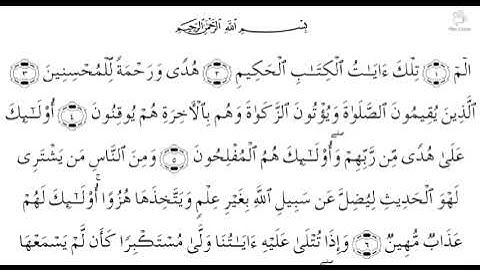 بِسْمِ اللَّهِ الرَّحْمَٰنِ الرَّحِيمِ
الٓمٓ ۝١ تِلْكَ ءَايَٰتُ ٱلْكِتَٰبِ ٱلْحَكِيمِ ۝٢ هُدًى وَرَحْمَةً لِّلْمُحْسِنِينَ ۝٣
ٱلَّذِينَ يُقِيمُونَ ٱلصَّلَوٰةَ وَيُؤْتُونَ ٱلزَّكَوٰةَ وَهُم بِٱلْءَاخِرَةِ هُمْ يُوقِنُونَ ۝٤ أُو۟لَٰٓئِكَ
عَلَىٰ هُدًى مِّن رَّبِّهِمْ ۖ وَأُو۟لَٰٓئِكَ هُمُ ٱلْمُفْلِحُونَ ۝٥ وَمِنَ ٱلنَّاسِ مَن يَشْتَرِى
لَهْوَ ٱلْحَدِيثِ لِيُضِلَّ عَن سَبِيلِ ٱللَّهِ بِغَيْرِ عِلْمٍ وَيَتَّخِذَهَا هُزُوًا ۚ أُو۟لَٰٓئِكَ لَهُمْ
عَذَابٌ مُّهِينٌ ۝٦ وَإِذَا تُتْلَىٰ عَلَيْهِ ءَايَٰتُنَا وَلَّىٰ مُسْتَكْبِرًا كَأَن لَّمْ يَسْمَعْهَا